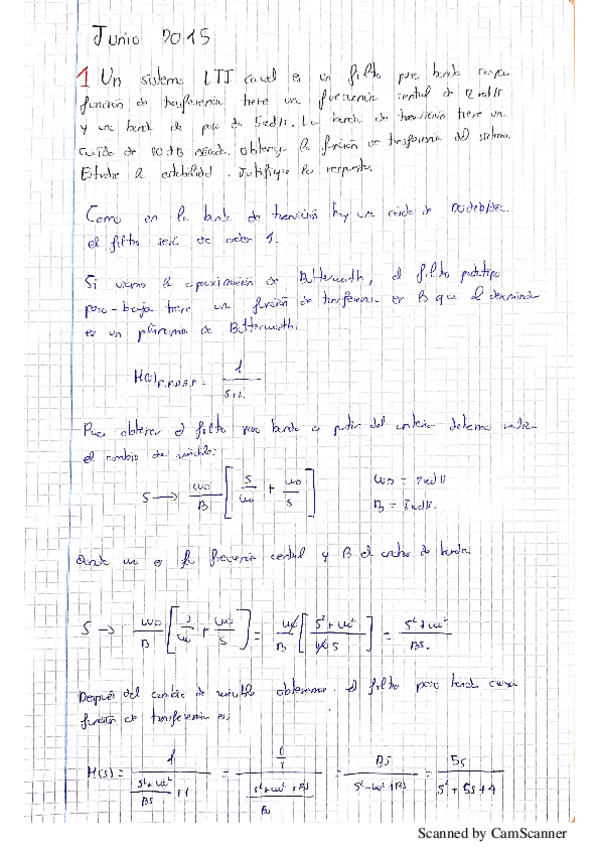 Junio 2015
1 Un sistema LTI causal es un filtro paso banda cuya
función de trasferencia tiene una frecuencia central de 2 rad/s
y una banda de paso de 5 rad/s. La banda de transición tiene una
caída de dB década. obtenga la función de trasferencia del sistema.
Estudie la estabilidad. Justifique la respuesta.
Como en la banda de transición hay una caída de
el filtro será de orden 1.
Si usamos la aproximación de Butterworth, el filtro prototipo
paso-bajo tiene una función de trasferencia en que el denominador
es un de Butterworth:
H(s) = 1 / s+1
Para obtener el filtro paso banda a partir del anterior debemos realizar
el cambio de variable:
S → ω0/B [ s/ω0 + ω0/s ] ω0 = rad/s
B = rad/s.
Donde ω0 es la frecuencia central y B el ancho de banda
S → ω0/B [ s/ω0 + ω0/s ] = ω0/B [ s²+ω0² / ω0 s ] = s²+ω0² / Bs.
Después del cambio de variable obtenemos el filtro paso banda cuya
función de trasferencia es:
H(s) = 1 / (s²+ω0² / Bs + 1) = = Bs / = 5s / s²+5s+4
Scanned by CamScanner